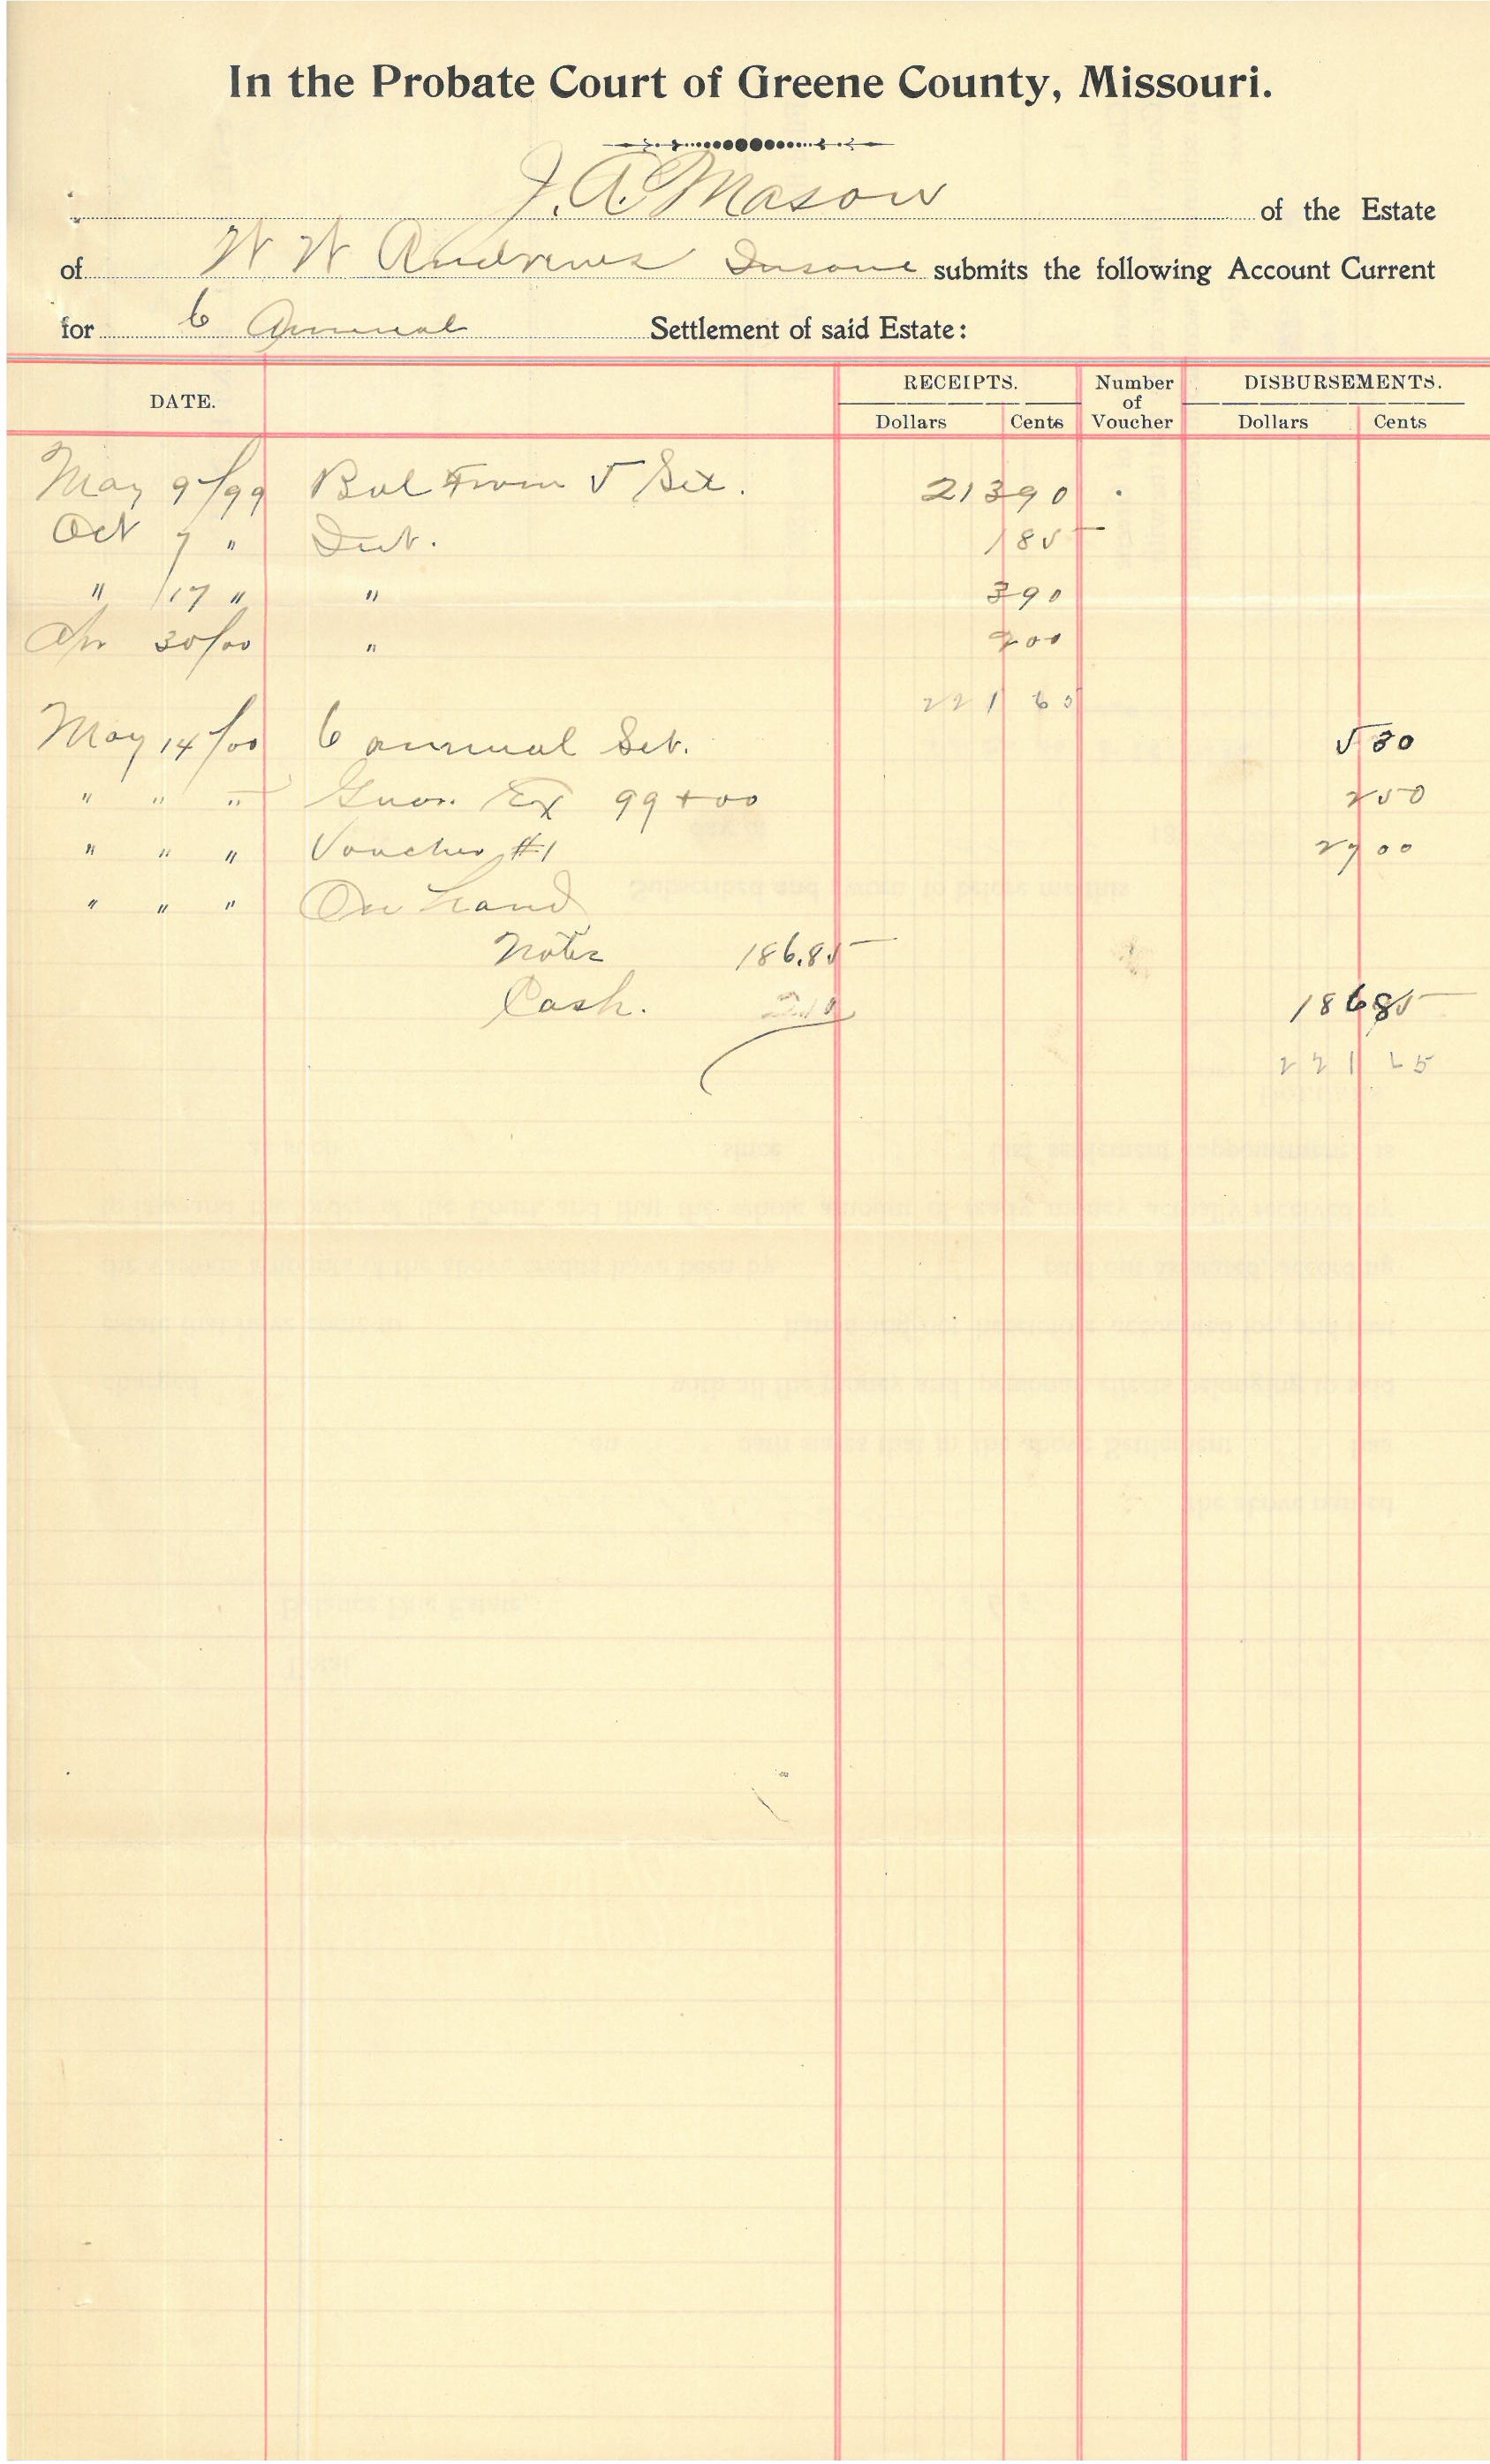 In the Probate Court of Greene County, Missouri.
J. A. Mason of the Estate
of W W Andrews Insane submits the following Account Current
for 6 Annual Settlement of said Estate:
DATE. RECEIPTS. Number of Voucher DISBURSEMENTS.
Dollars Cents Dollars Cents
May 9/99 Bal From 5 Set. 213 90
Oct 7 " Int. 1 85
" 17 " " 3 90
Apr 30/00 " 2 00
221 65
May 14/00 6 annual Set. 5 30
" " " Guar. Ex 99 + 00 2 50
" " " Voucher #1 27 00
" " " On hand
Notes 186.85
Cash. 186 85
221 65